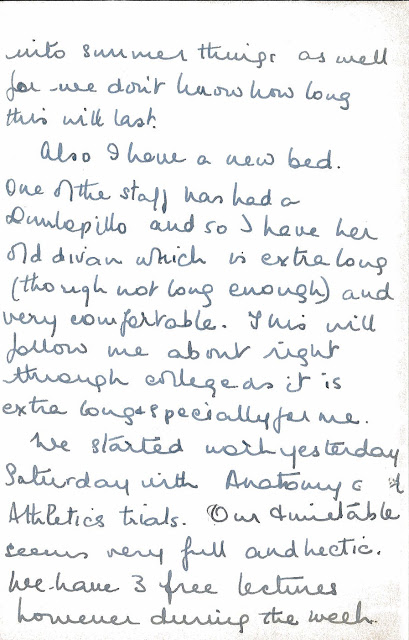 into summer things as well
for we don't know how long
this will last.
Also I have a new bed.
One of the staff has had a
Dunlopillo and so I have her
old divan which is extra long
(though not long enough) and
very comfortable. This will
follow me about right
through college as it is
extra long & specially for me.
We started work yesterday
Saturday with Anatomy &
Athletics trials. Our timetable
seems very full and hectic.
We have 3 free lectures
however during the week.